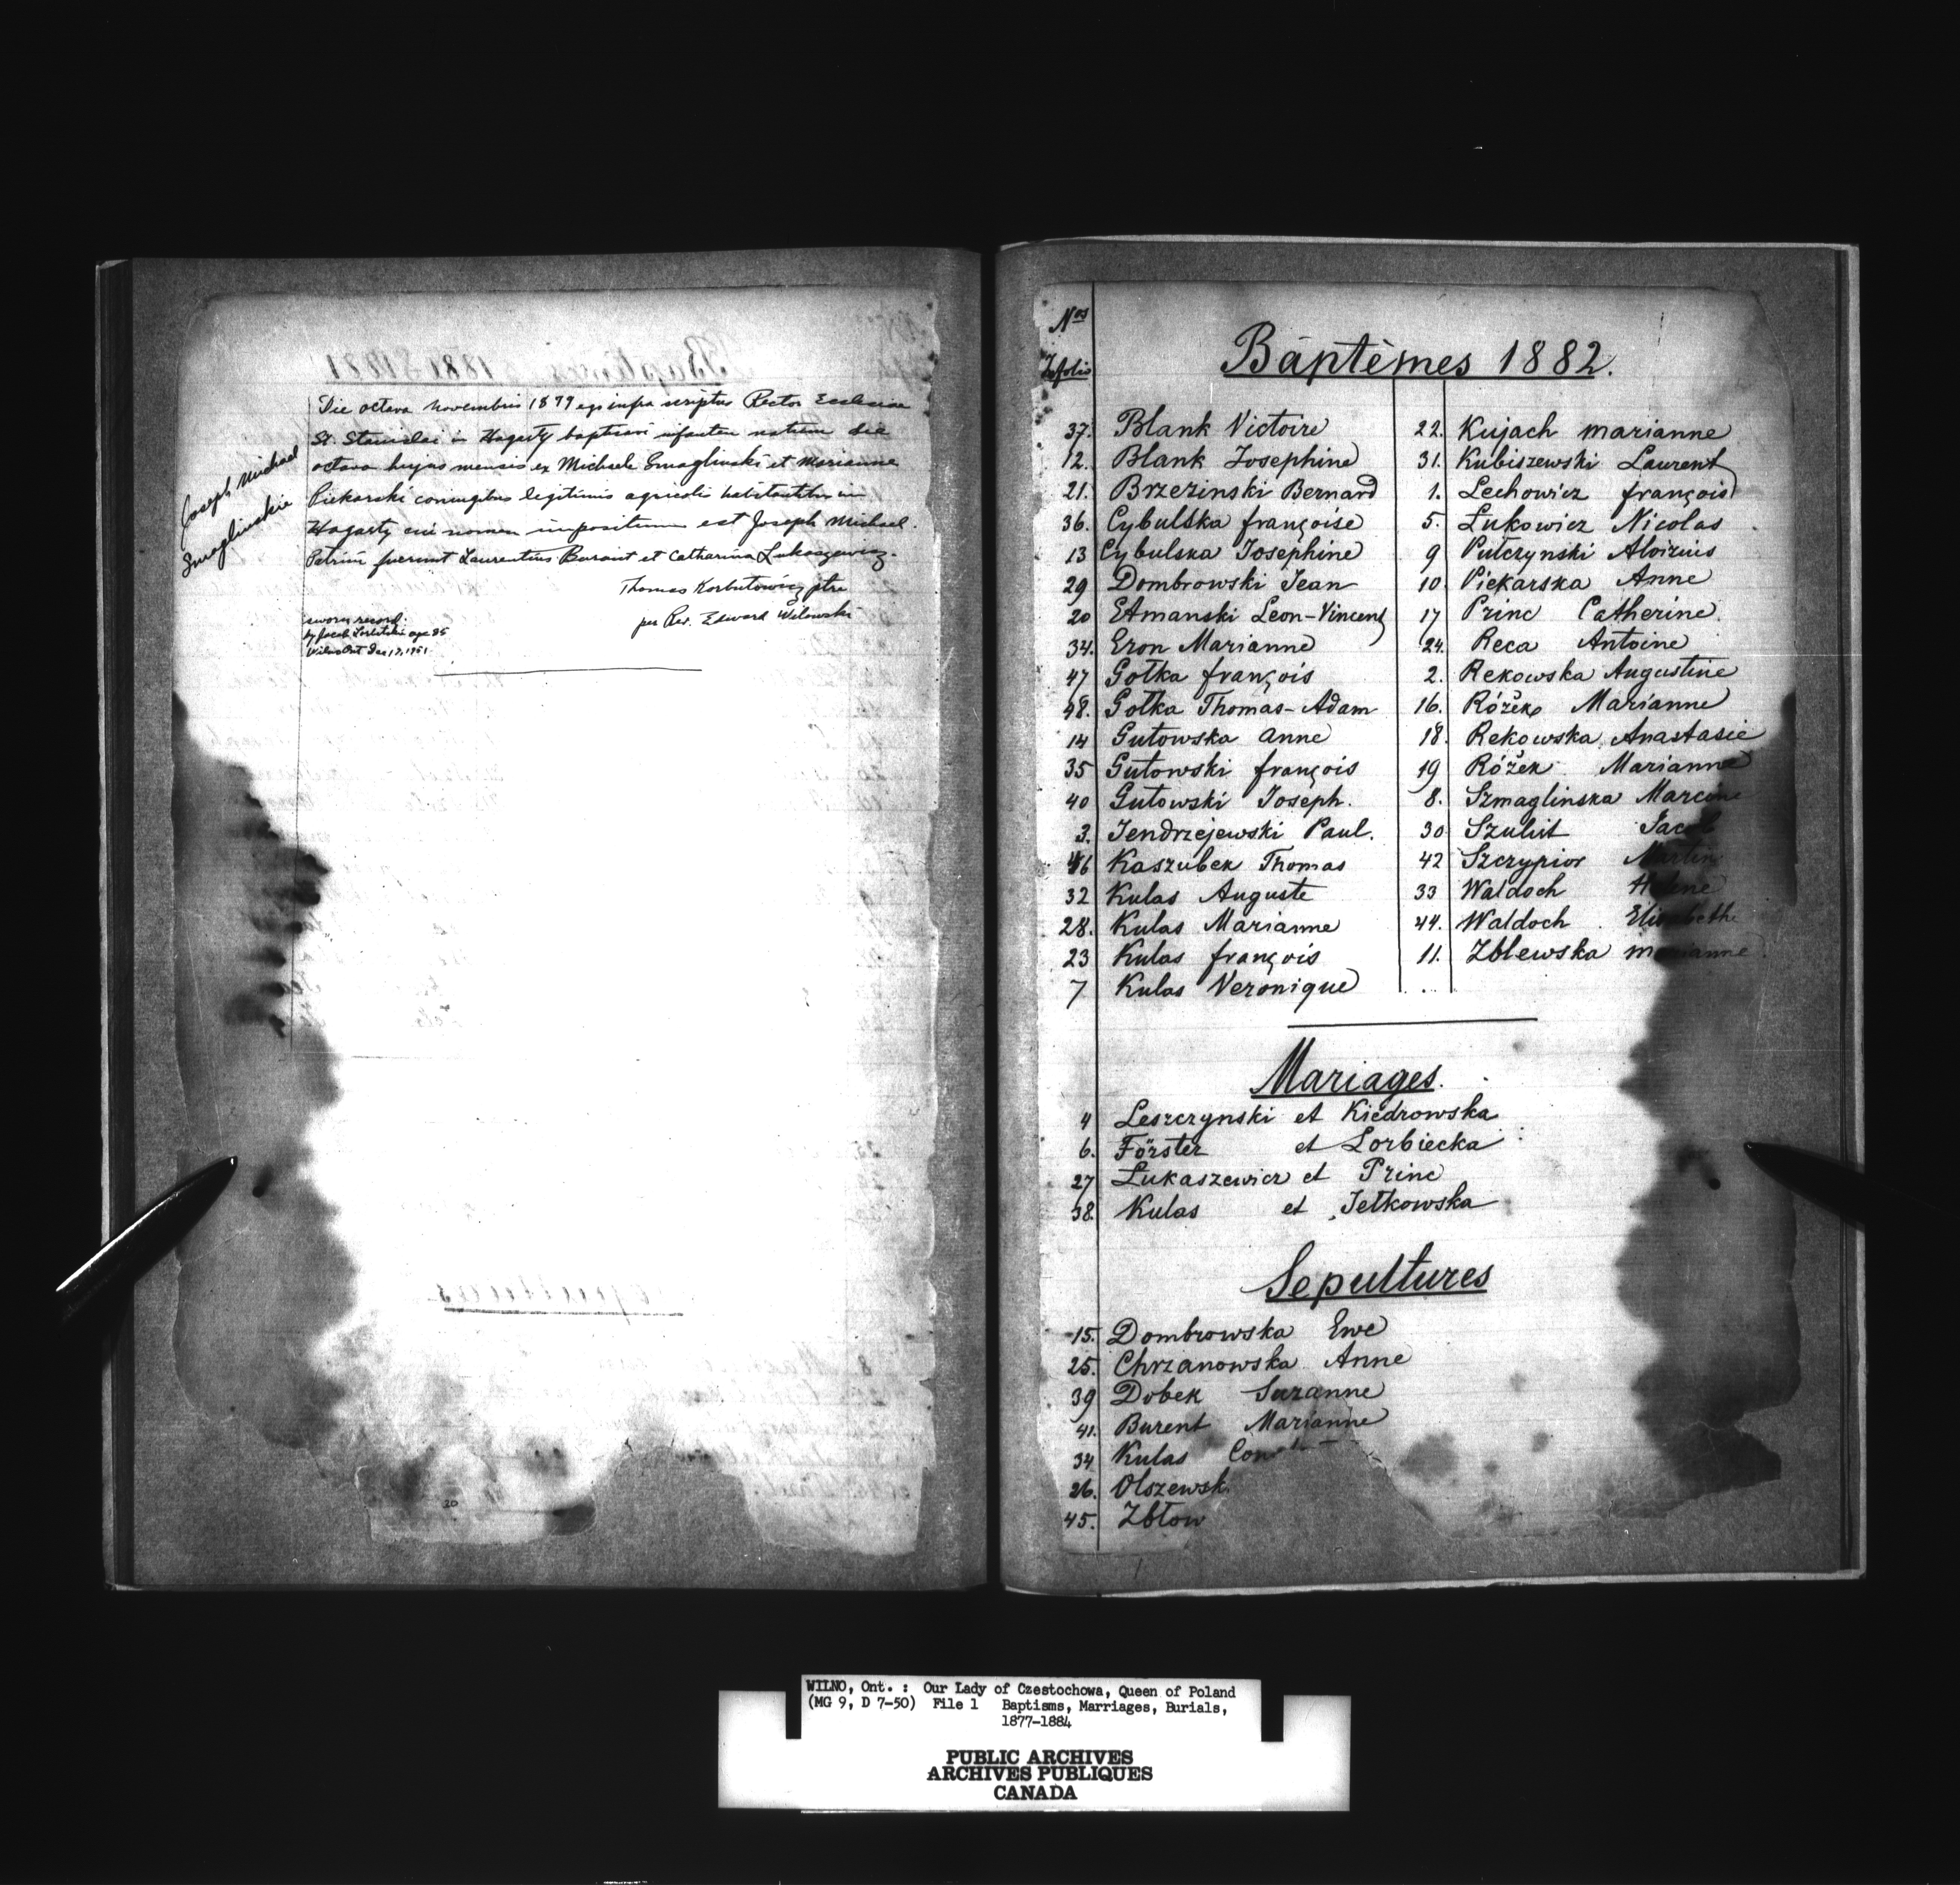 Joseph Michael
Smaglinskie
Die octava Novembris 1879 ego infra scriptus Rector Ecclesiae
St. Stanislai in Hagarty baptisavi infantem natum die
octava hujus mensis ex Michaele Smaglinski et Marianna
Piekarski coniugibus legitimis agricolis habitantibus in
Hagarty cui nomen impositum est Joseph Michael.
Patrini fuerunt Laurentius Burant et Catharina Lukaszewicz.
Thomas Korbutowicz ptre
per Rev. Edward Wilowski
sworn record.
by Jacob age 85
Wilno Ont Dec 17, 1951
20
Nos
folio
Baptêmes 1882.
37. Blank Victoire
12. Blank Josephine
21. Brzezinski Bernard
36. Cybulska françoise
13 Cybulska Josephine
29 Dombrowski Jean
20 Etmanski Leon-Vincent
34. Eron Marianne
47 Gołka françois
48. Gołka Thomas-Adam
14 Gutowska Anne
35 Gutowski françois
40 Gutowski Joseph.
3. Jendrzejewski Paul.
46 Kaszubek Thomas
32 Kulas Auguste
28. Kulas Marianne
23 Kulas françois
7 Kulas Veronique
22. Kujach marianne
31. Kubiszewski Laurent
1. Lechowicz françois
5. Łukowicz Nicolas
9 Pułczynski Aloizius
10. Piekarska Anne
17 Princ Catherine.
24. Reca Antoine
2. Rekowska Augustine
16. Różek Marianne
18. Rekowska Anastasie
19 Różek Marianne
8. Szmaglinska
30 Szulist Jacob
42 Szczypior Martin
33 Waldoch Helene
44. Waldoch Elisabethe
11. Zblewska marianne
Mariages.
4 Leszczynski et Kiedrowska
6. Förster et Lorbiecka
27 Łukaszewicz et Princ
38. Kulas et Jetkowska
Sepultures
15. Dombrowska Ewe
25. Chrzanowska Anne
39 Dobek Suzanne
41. Burent Marianne
34 Kulas
26. Olszewsk
45. Zbłow
WILNO, Ont. : Our Lady of Czestochowa, Queen of Poland
(MG 9, D 7-50) File 1 Baptisms, Marriages, Burials,
1877-1884
PUBLIC ARCHIVES
ARCHIVES PUBLIQUES
CANADA